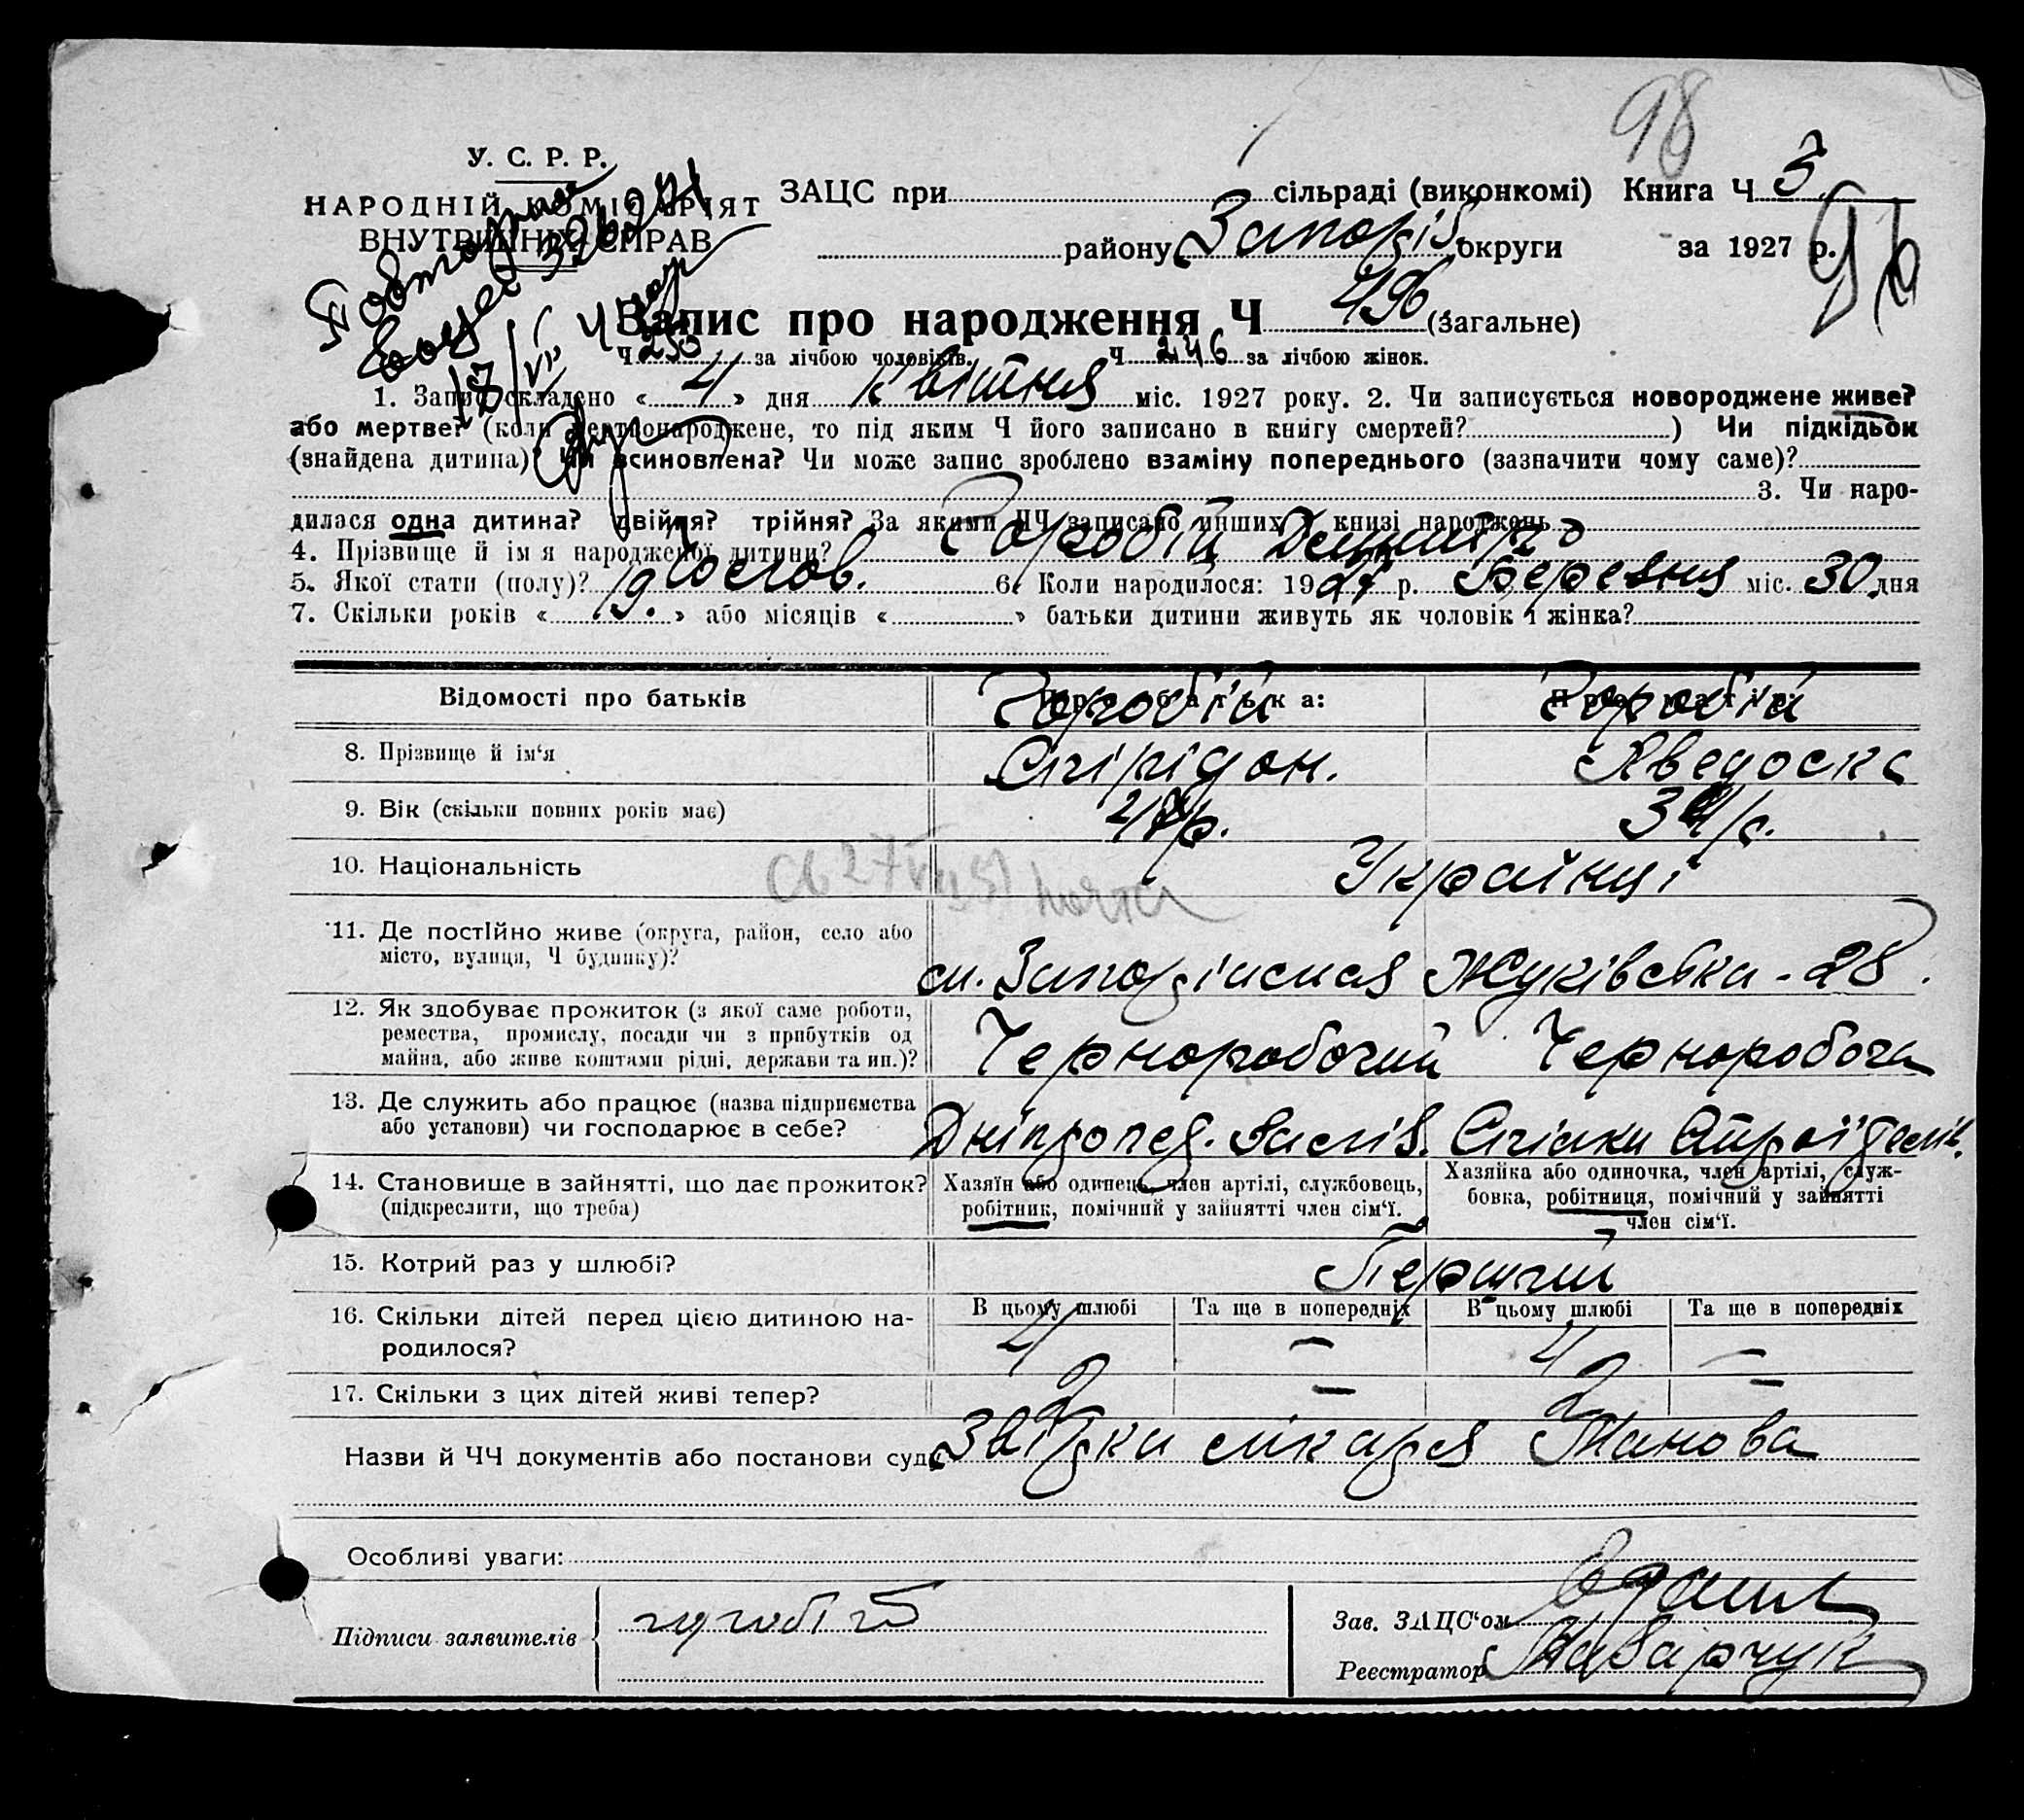 98
У. С. Р. Р.
НАРОДНІЙ КОМІСАРІЯТ
ВНУТРІШНІХ СПРАВ
ЗАЦС при сільраді (виконкомі) Книга Ч 3
району Запоріз. округи за 1927 р.
96
Запис про народження Ч 496 (загальне)
Ч 250 за лічбою чоловіків. Ч 246 за лічбою жінок.
1. Запис складено « 4 » дня Квітня міс. 1927 року. 2. Чи записується новороджене живе?
або мертве? (коли мертвонароджене, то під яким Ч його записано в книгу смертей? ) Чи підкідьок
(знайдена дитина) Чи всиновлена? Чи може запис зроблено взаміну попереднього (зазначити чому саме)?
3. Чи наро-
дилася одна дитина? двійня? трійня? За якими ЧЧ записано инших в книзі народжень
4. Прізвище й ім'я народженої дитини? Горобій Дмитро
5. Якої стати (полу)? Чолов. 6. Коли народилося: 1927 р. Березня міс. 30 дня
7. Скільки років « 19. » або місяців « » батьки дитини живуть як чоловік і жінка?
Відомості про батьків Про батька: Про матір:
8. Прізвище й ім'я Горобій Спірідон. Горобій Явдоска
9. Вік (скільки повних років має) 47р.
10. Національність Українці
11. Де постійно живе (округа, район, село або
місто, вулиця, Ч будинку)? м. Запоріжжя Жуківська - 28.
12. Як здобуває прожиток (з якої саме роботи,
ремества, промислу, посади чи з прибутків од
майна, або живе коштами рідні, держави та ин.)? Чорноробочий Чорноробоча
13. Де служить або працює (назва підприємства
або установи) чи господарює в себе? Спілки
14. Становище в зайнятті, що дає прожиток?
(підкреслити, що треба)
Хазяїн або одинець, член артілі, службовець,
робітник, помічний у зайнятті член сім'ї.
Хазяйка або одиночка, член артілі, служ-
бовка, робітниця, помічний у зайнятті
член сім'ї.
15. Котрий раз у шлюбі? Перший
16. Скільки дітей перед цією дитиною на-
родилося?
В цьому шлюбі Та ще в попередніх В цьому шлюбі Та ще в попередніх
4 — 4 —
17. Скільки з цих дітей живі тепер? 2 — 2 —
Назви й ЧЧ документів або постанови суду Звідка лікаря Танова
Особливі уваги:
Підписи заявителів
Зав. ЗАЦС'ом
Реєстратор